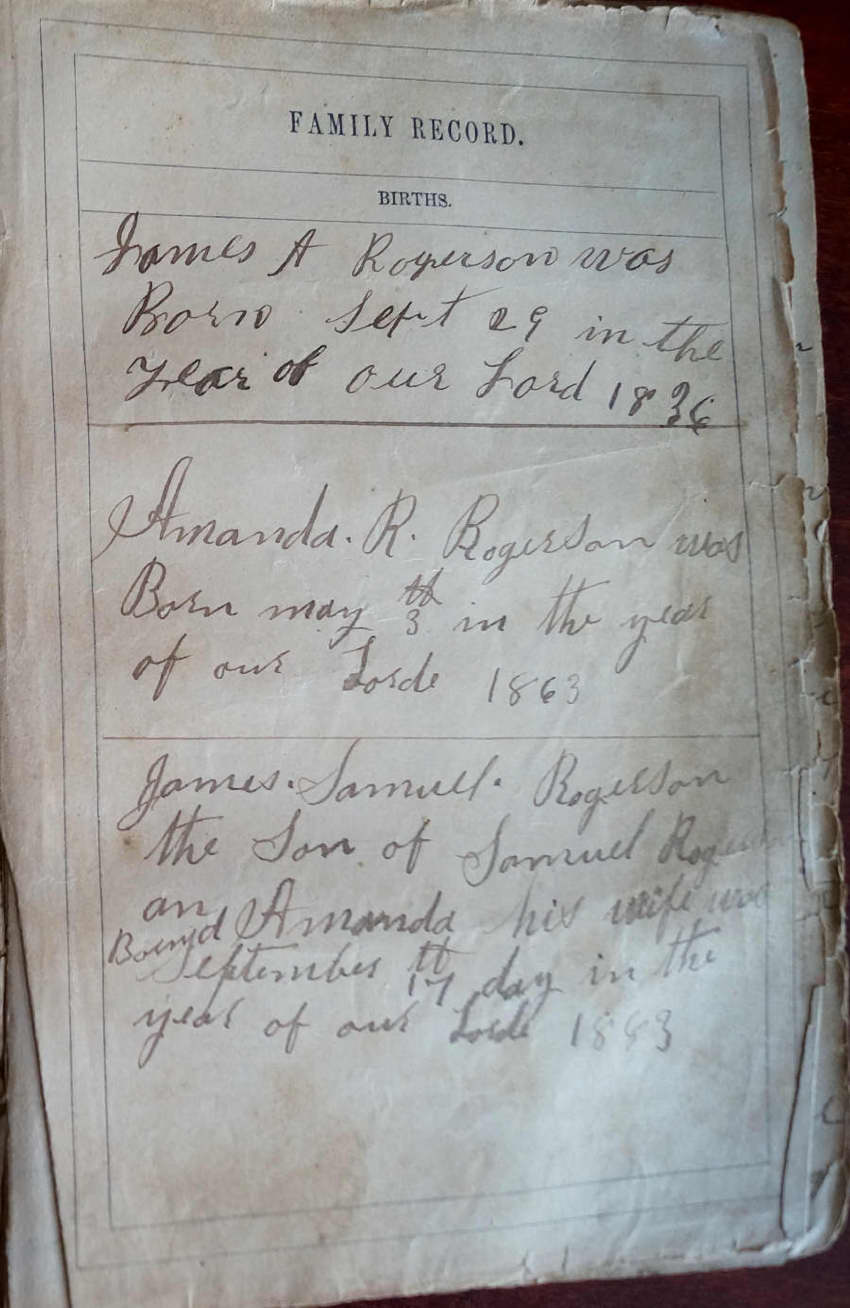 FAMILY RECORD.
BIRTHS.
James A Rogerson was
Born Sept 29 in the
Year of our Lord 1836
Amanda. R. Rogerson was
Born may 3th in the year
of our Lorde 1863
James. Samuel. Rogerson
the Son of Samuel
an Amanda his wife was
September 17th day in the
year of our Lorde 1883